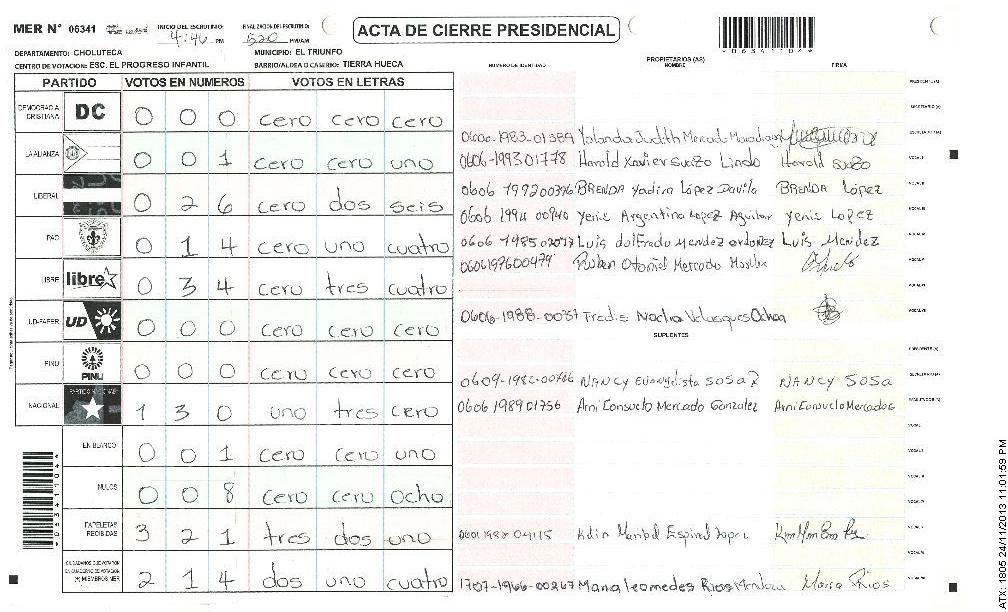 MER N° 06341 INICIO DEL ESCRUTINIO: 4:46 PM FINALIZACION DEL ESCRUTINIO: 520 PM/AM ACTA DE CIERRE PRESIDENCIAL
DEPARTAMENTO: CHOLUTECA MUNICIPIO: EL TRIUNFO
CENTRO DE VOTACION: ESC. EL PROGRESO INFANTIL BARRIO/ALDEA O CASERIO: TIERRA HUECA
PARTIDO VOTOS EN NUMEROS VOTOS EN LETRAS
DEMOCRACIA CRISTIANA DC 0 0 0 cero cero cero
LA ALIANZA 0 0 1 cero cero uno
LIBERAL 0 2 6 cero dos seis
PAC 0 1 4 cero uno cuatro
LIBRE libre 0 3 4 cero tres cuatro
UD-FAPER UD 0 0 0 cero cero cero
PINU PINU 0 0 0 cero cero cero
NACIONAL 1 3 0 uno tres cero
EN BLANCO 0 0 1 cero cero uno
NULOS 0 0 8 cero cero ocho
PAPELETAS RECIBIDAS 3 2 1 tres dos uno
CIUDADANOS QUE VOTARON EN CUADERNO DE VOTACION (+) MIEMBROS MER 2 1 4 dos uno cuatro
NUMERO DE IDENTIDAD PROPIETARIOS (AS) NOMBRE FIRMA
PRESIDENTE(A)
SECRETARIO (A)
0606-1983-01389 Yolanda Judith Mercado
0606-1993 01778 Harold Xavier Suazo Lindo Harold Suazo
0606 199200396 BRENDA Yadira López Davila BRENDA López
0606 1994 00940 Yenis Argentina Lopez Aguilar Yenis Lopez
Luis dolfredo Mendez ordoñez Luis Mendez
0606197600479 Ruben Otoniel Mercado
0606-1988-00357 Fredis Velasques Ochoa
SUPLENTES
NANCY Evangelista SOSA R NANCY SOSA
0606 1989 01756 Arni Consuelo Mercado Gonzalez Arni Consuelo Mercado G
Maribel Espinal Lopez
1707-1966-00267 Maria leomedes Rios Maria Rios
ATX: 1805 24/11/2013 11:01:59 PM